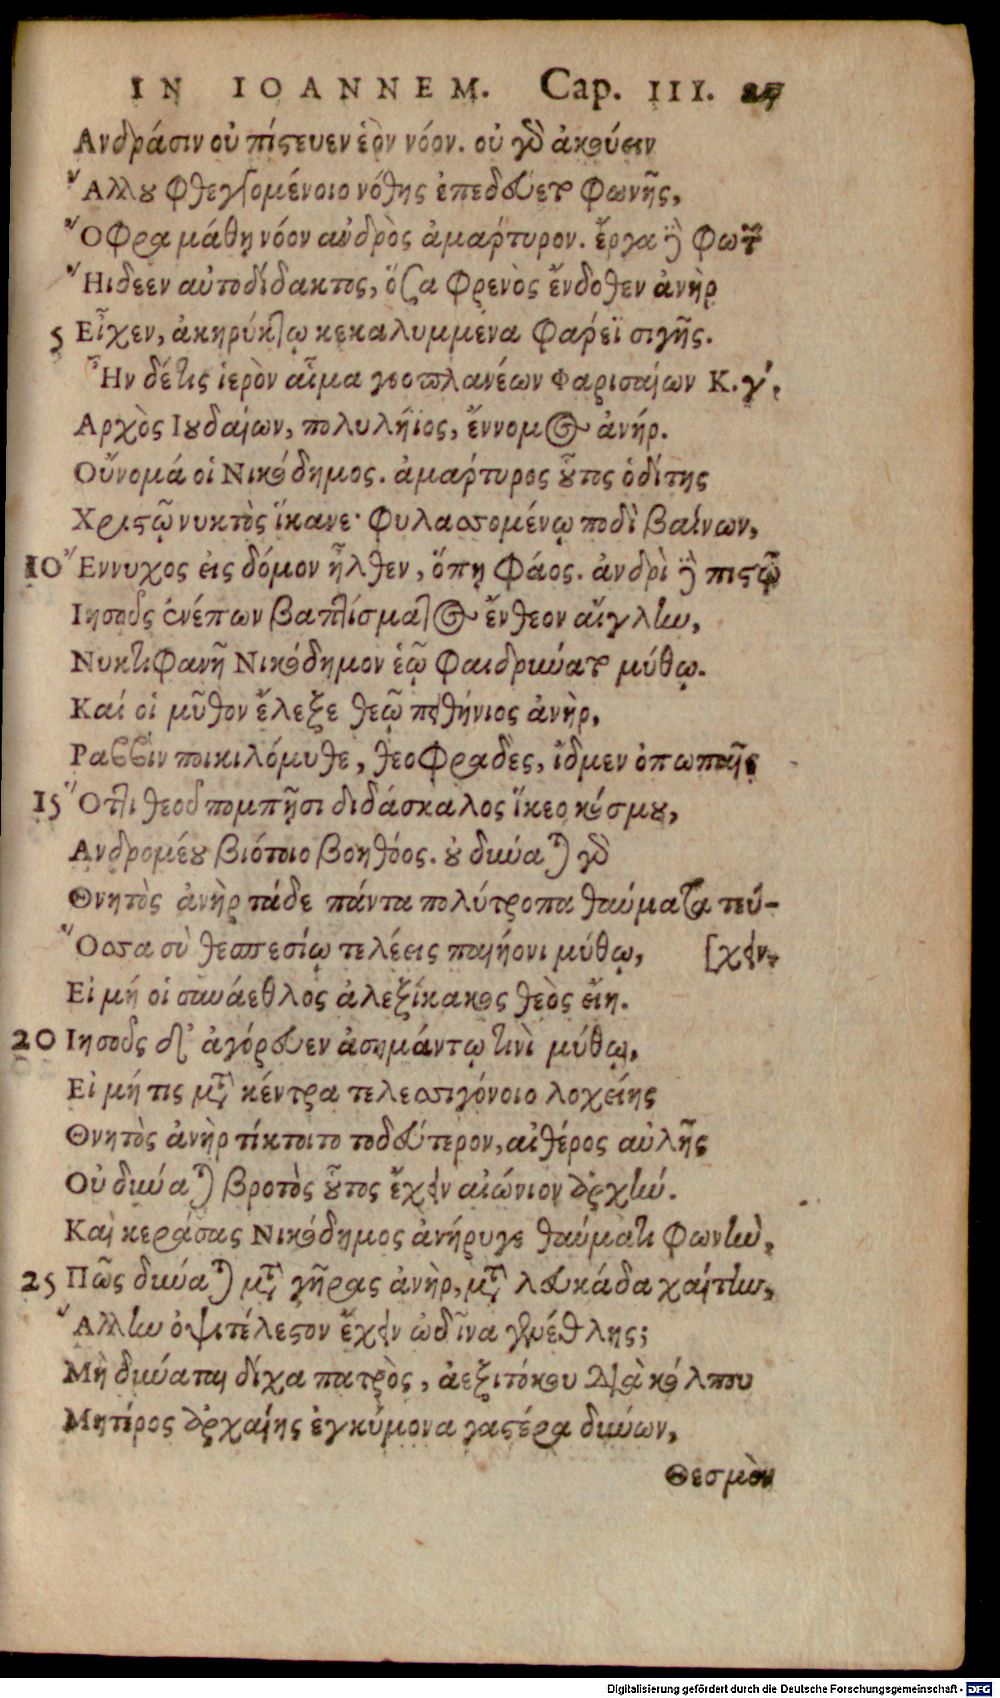 IN IOANNEM. Cap. III. 27
Ανδράσιν οὐ πίστευεν ἑὸν νόον. οὐ γὸ ἀκούειν
Ἄλλου φθεγξομένοιο νόθης ἐπεδεύετο φωνῆς,
Ὄφρα μάθῃ νόον ἀνδρὸς ἀμάρτυρον. ἔργα δὲ φωτὸς
Ἤιδεεν αὐτοδίδακτος, ὅσα φρενὸς ἔνδοθεν ἀνὴρ
5 Εἶχεν, ἀκηρύκτῳ κεκαλυμμένα φάρεϊ σιγῆς.
Ἦν δέ τις ἱερὸν αἷμα νοοπλανέων Φαρισαίων Κ. γ΄.
Αρχὸς Ἰουδαίων, πολυλήϊος, ἔννομος ἀνήρ.
Οὔνομά οἱ Νικόδημος. ἀμάρτυρος οὗτος ὁδίτης
Χριστῷ νυκτὸς ἵκανε· φυλασσομένῳ ποδὶ βαίνων,
10 Ἔννυχος εἰς δόμον ἦλθεν, ὅπῃ φάος. ἀνδρὶ δὲ πιστῷ
Ιησοῦς ἐνέπων βαπτίσματος ἔνθεον αἴγλην,
Νυκτιφανῆ Νικόδημον ἑῷ φαιδρύνατο μύθῳ.
Καί οἱ μῦθον ἔλεξε θεῷ πειθήνιος ἀνὴρ,
Ραββὶν ποικιλόμυθε, θεοφραδὲς, ἴδμεν ὀπωπαῖς
15 Ὅττι θεοῦ πομπῇσι διδάσκαλος ἵκεο κόσμου,
Ανδρομέου βιότοιο βοηθόος. οὐ δύναται γὸ
Θνητὸς ἀνὴρ τάδε πάντα πολύτροπα θαύματα τεύ-
Ὅσσα σὺ θεσπεσίῳ τελέεις παιήονι μύθῳ, [χειν,
Εἰ μή οἱ συνάεθλος ἀλεξίκακος θεὸς εἴη.
20 Ιησοῦς δ᾽ ἀγόρευεν ἀσημάντῳ τινὶ μύθῳ,
Εἰ μή τις μετὰ κέντρα τελεσσιγόνοιο λοχείης
Θνητὸς ἀνὴρ τίκτοιτο τοδεύτερον, αἰθέρος αὐλῆς
Οὐ δύναται βροτὸς οὗτος ἔχειν αἰώνιον ἀρχήν.
Καὶ κεράσας Νικόδημος ἀνήρυγε θαύματι φωνὴν,
25 Πῶς δύναται μετὰ γῆρας ἀνὴρ, μετὰ λευκάδα χαίτην,
Ἄλλην ὀψιτέλεστον ἔχειν ὠδῖνα γενέθλης;
Μὴ δύναται δίχα πατρὸς, ἀεξιτόκου διὰ κόλπου
Μητέρος ἀρχαίης ἐγκύμονα γαστέρα δύνων,
Θεσμὸν
Digitalisierung gefördert durch die Deutsche Forschungsgemeinschaft - DFG